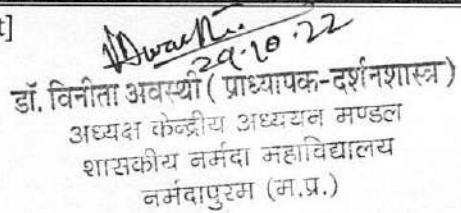 t]
29.10.22
डॉ. विनीता अवस्थी ( प्राध्यापक-दर्शनशास्त्र )
अध्यक्ष केन्द्रीय अध्ययन मण्डल
शासकीय नर्मदा महाविद्यालय
नर्मदापुरम (म.प्र.)